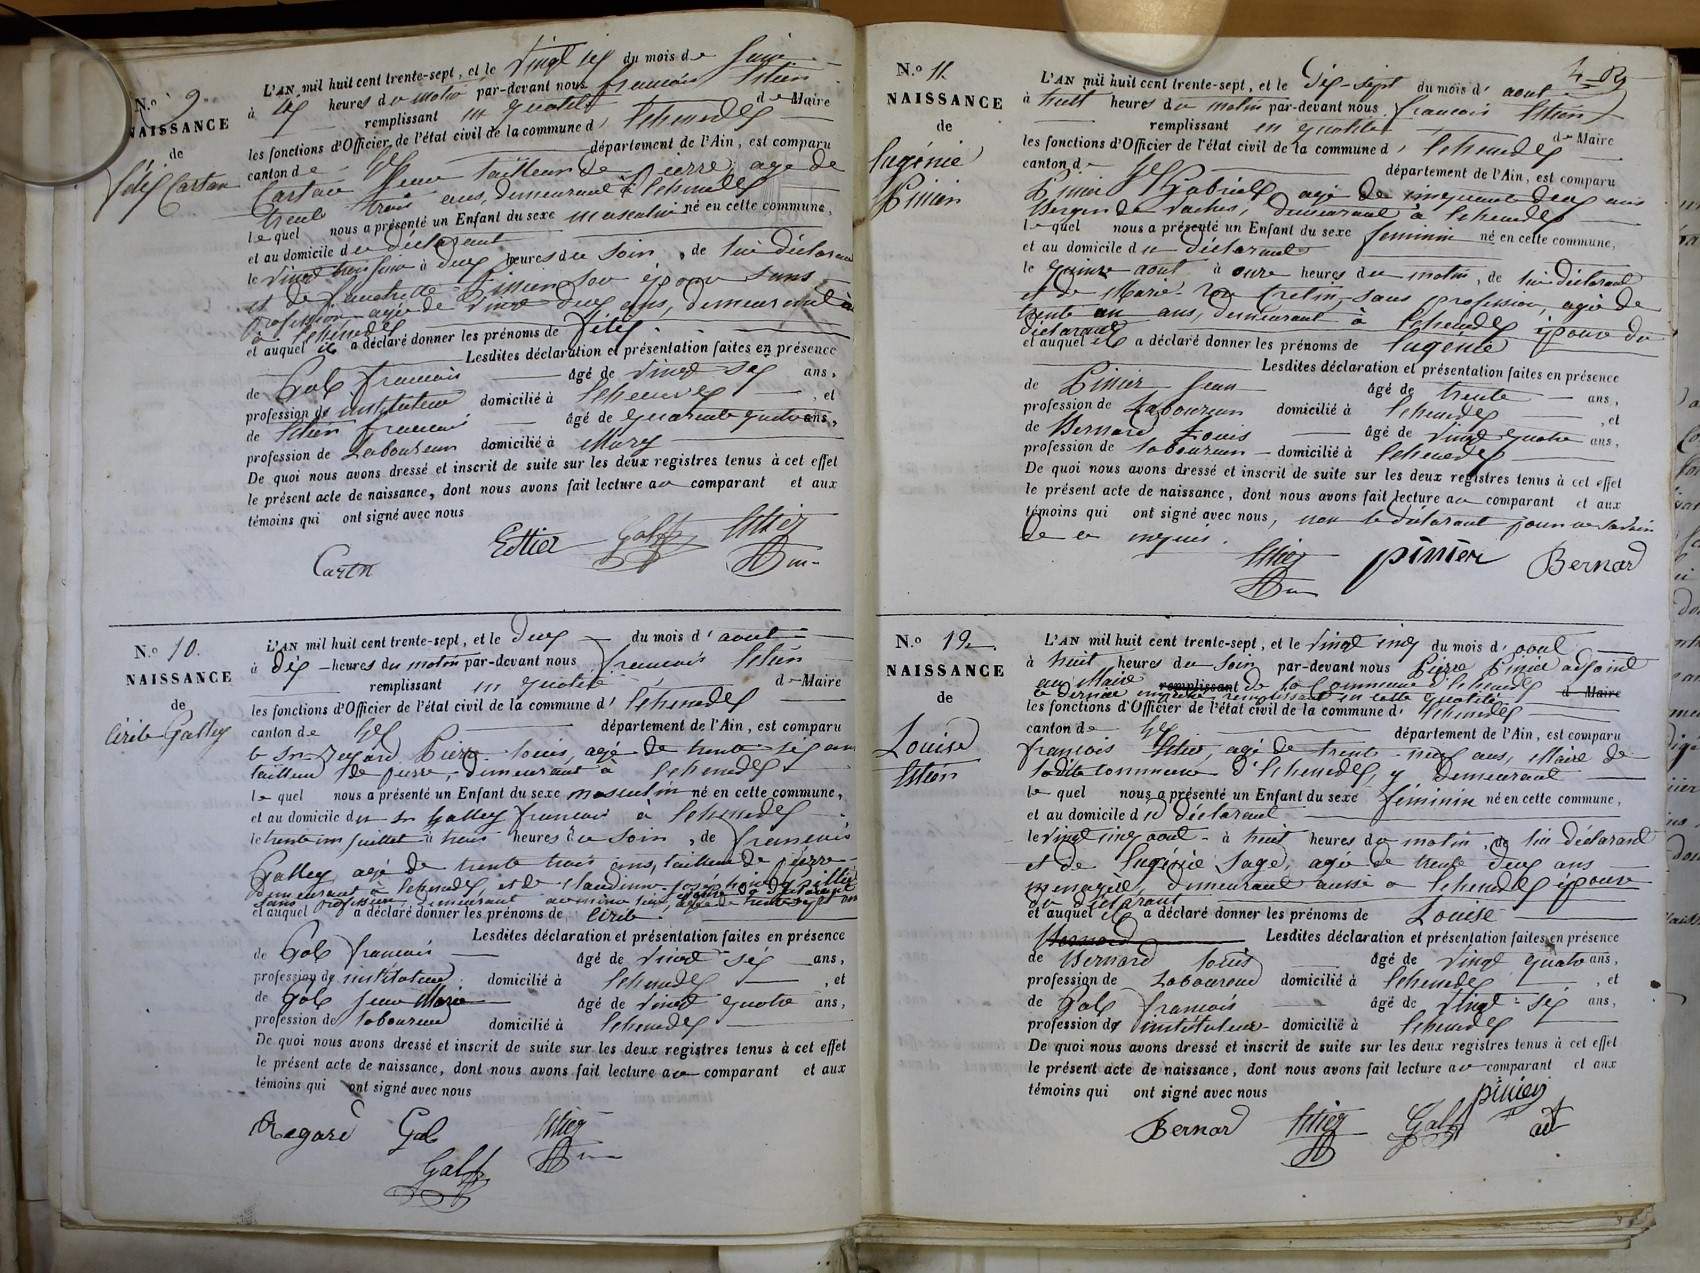 N.o 9
NAISSANCE
de
Carton
L'AN mil huit cent trente-sept, et le vingt six du mois de Juin
à dix heures du matin par-devant nous françois
remplissant en qualité de Maire
les fonctions d'Officier de l'état civil de la commune d'Echenevex
canton de Gex département de l'Ain, est comparu
Jean tailleur de pierre, agé de
trente trois ans, demeurant à Echenevex
lequel nous a présenté un Enfant du sexe masculin né en cette commune,
et au domicile du déclarant
le vingt trois Juin à deux heures du soir, de lui déclarant
et de son épouse sans
profession agée de vingt deux ans, demeurant
à Echenevex
et auquel il a déclaré donner les prénoms de
Lesdites déclaration et présentation faites en présence
de françois âgé de vingt six ans,
profession de instituteur domicilié à Echenevex, et
de françois âgé de quarante quatre ans,
profession de Laboureur domicilié à
De quoi nous avons dressé et inscrit de suite sur les deux registres tenus à cet effet
le présent acte de naissance, dont nous avons fait lecture au comparant et aux
témoins qui ont signé avec nous
N.o 10.
NAISSANCE
de
L'AN mil huit cent trente-sept, et le deux du mois d'aout
à dix heures du matin par-devant nous françois
remplissant en qualité de Maire
les fonctions d'Officier de l'état civil de la commune d'Echenevex
canton de Gex département de l'Ain, est comparu
le Sr Regard Pierre Louis, agé de trente six ans
tailleur de pierre, demeurant à Echenevex
lequel nous a présenté un Enfant du sexe masculin né en cette commune,
et au domicile du Sr françois à Echenevex
le trente un juillet à trois heures du soir, de françois
agé de trente trois ans, tailleur de pierre
demeurant à Echenevex, et de Claudine
sans profession, demeurant
et auquel a déclaré donner les prénoms de
Lesdites déclaration et présentation faites en présence
de françois âgé de vingt six ans,
profession de instituteur domicilié à Echenevex, et
de Jean Marie âgé de vingt quatre ans,
profession de laboureur domicilié à Echenevex
De quoi nous avons dressé et inscrit de suite sur les deux registres tenus à cet effet
le présent acte de naissance, dont nous avons fait lecture au comparant et aux
témoins qui ont signé avec nous
Regard
N.o 11.
NAISSANCE
de
Eugénie
Pinier
L'AN mil huit cent trente-sept, et le Dix-sept du mois d'aout
à huit heures du matin par-devant nous françois
remplissant en qualité de Maire
les fonctions d'Officier de l'état civil de la commune d'Echenevex
canton de Gex département de l'Ain, est comparu
Pinier Gabriel, agé de cinquante deux ans
Berger de vaches, demeurant à Echenevex
lequel nous a présenté un Enfant du sexe féminin né en cette commune,
et au domicile du déclarant
le quinze aout à onze heures du matin, de lui déclarant
et de Marie sans profession, agée de
trente un ans, demeurant à Echenevex épouse du
déclarant
et auquel il a déclaré donner les prénoms de Eugénie
Lesdites déclaration et présentation faites en présence
de Pinier Jean âgé de trente ans,
profession de Laboureur domicilié à Echenevex, et
de Bernard Louis âgé de vingt quatre ans,
profession de laboureur domicilié à Echenevex
De quoi nous avons dressé et inscrit de suite sur les deux registres tenus à cet effet
le présent acte de naissance, dont nous avons fait lecture au comparant et aux
témoins qui ont signé avec nous, non le déclarant pour ne savoir
de ce requis.
pinier Bernard
N.o 12
NAISSANCE
de
Louise
L'AN mil huit cent trente-sept, et le vingt cinq du mois d'aout
à huit heures du soir par-devant nous Pierre Pinier adjoint
au Maire remplissant de la Commune d'Echenevex de Maire
ce dernier remplissant en cette qualité
les fonctions d'Officier de l'état civil de la commune d'Echenevex
canton de Gex département de l'Ain, est comparu
françois, agé de trente neuf ans, Maire de
ladite commune d'Echenevex, y demeurant
lequel nous a présenté un Enfant du sexe féminin né en cette commune,
et au domicile du déclarant
le vingt cinq aout à huit heures du matin, de lui déclarant
et de Eugénie Sage, agée de trente deux ans
menagère, demeurant aussi à Echenevex épouse
du déclarant
et auquel il a déclaré donner les prénoms de Louise
Bernard Lesdites déclaration et présentation faites en présence
de Bernard Louis âgé de vingt quatre ans,
profession de Laboureur domicilié à Echenevex, et
de françois âgé de vingt-six ans,
profession de instituteur domicilié à Echenevex
De quoi nous avons dressé et inscrit de suite sur les deux registres tenus à cet effet
le présent acte de naissance, dont nous avons fait lecture au comparant et aux
témoins qui ont signé avec nous
pinier
Bernard adt